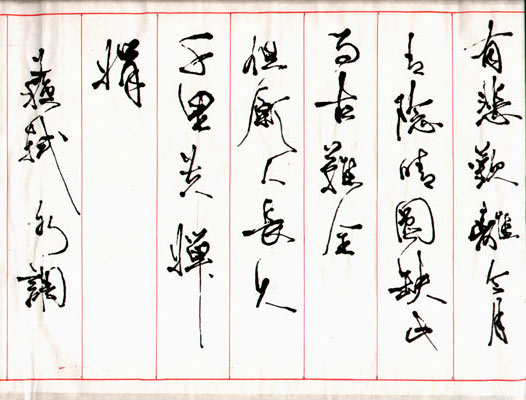 有悲歡離合月
有陰晴圓缺此
事古難全
但願人長久
千里共嬋
娟
蘇軾水調